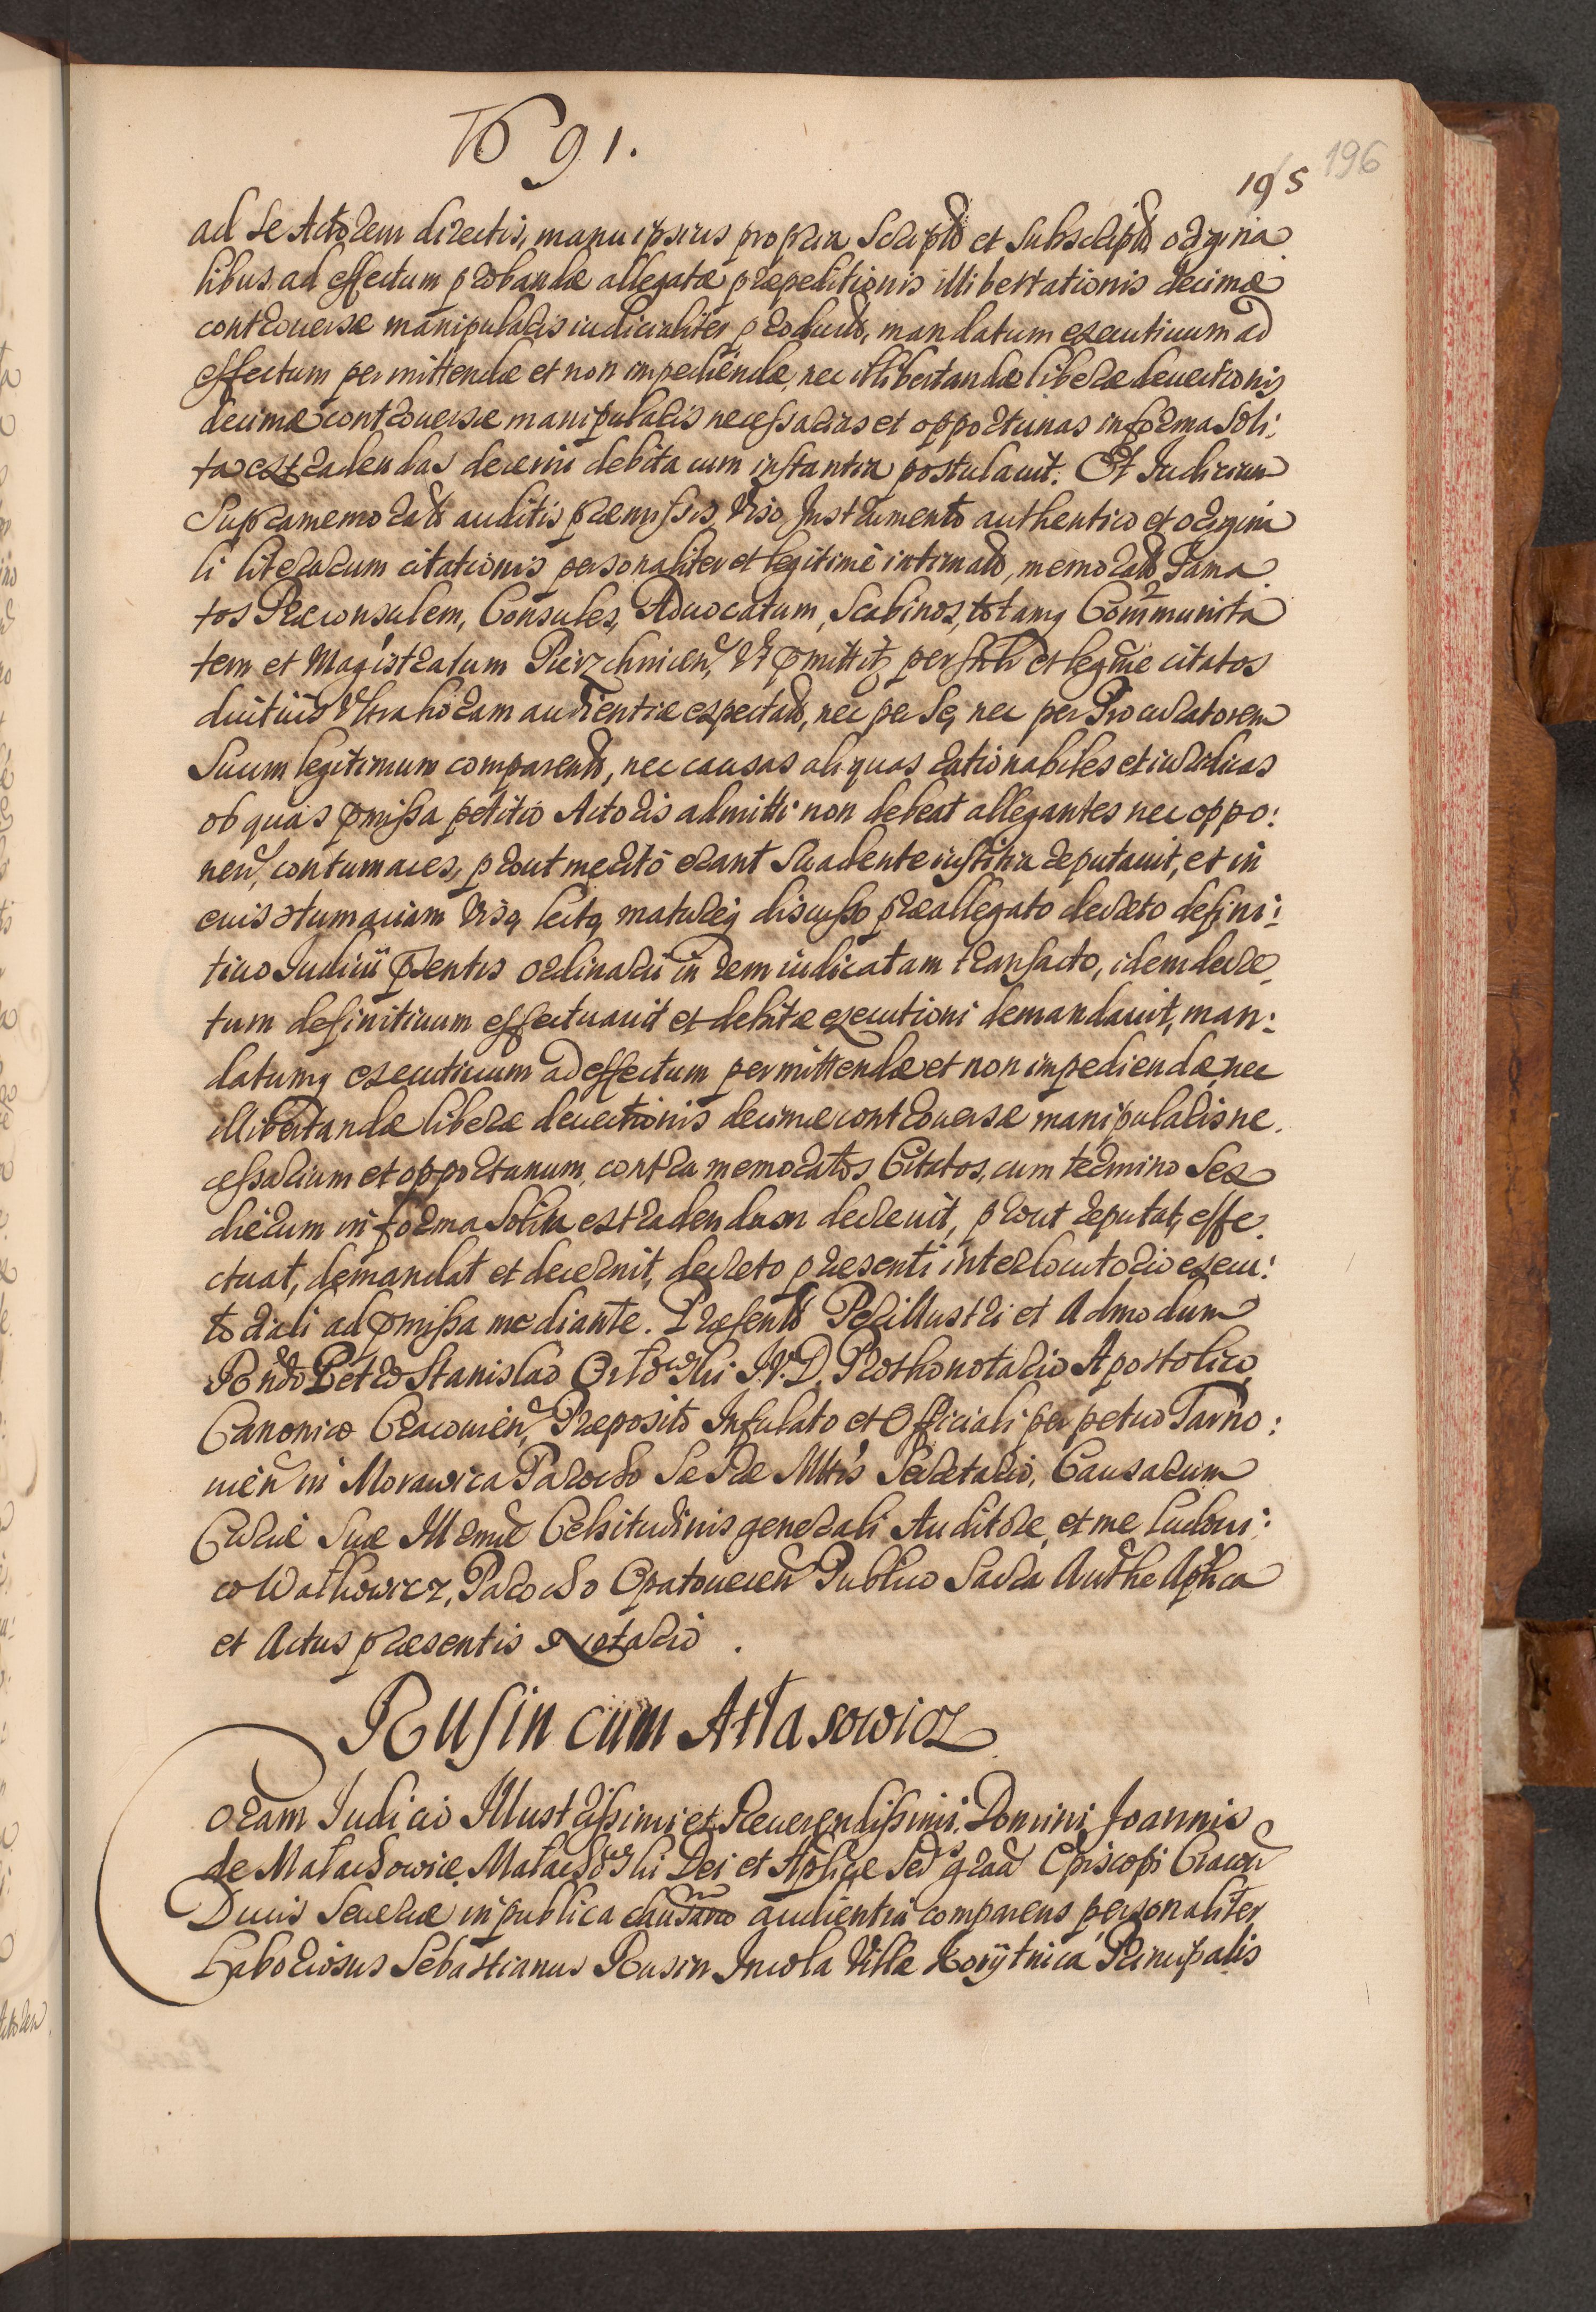 1691.
196
195
ad se Actorem directis, manu ipsius propria Scriptis et Subscriptis origina
libus ad effectum probandæ allegatæ præpeditionis illibertationis decimæ
controuersæ manipularis iudicialiter productis, mandatum executiuum ad
effectum permittendæ et non impediendæ, nec illibertandæ liberæ deuectionis
decimæ controuersæ manipularis necessarias et opportunas in forma Soli:
ta extradendas decerni debita cum instantia postulauit. Et Iudicium
Supramemoratum auditis præmissis, Viso Instrumento authentico et origina
li literarum citationis personaliter et legitimè intimato, memoratos Fama
tos Præconsulem, Consules, Aduocatum, Scabinos, totamq Communita
tem et Magistratum Pierzchnicen, Vt pmittitur, per et legitime citatos
diutiùs Vltra horam audientiæ expectatos, nec per Se, nec per Procuratorem
Suum legitimum comparentes, nec causas aliquas rationabiles et iuridicas
ob quas pmissa petitio Actoris admitti non debeat allegantes nec oppo:
nen, contumaces, prout meritò erant Suadente iustitia reputauit, et in
euis otumaciam Visoq lectoq matureq discusso præallegato decreto defini:
tiuo Iudicii pSentis ordinarii in rem iudicatam transacto, idem decre
tum definitiuum effectuauit et debitæ executioni demandauit, man:
datumq executiuum ad effectum permittendæ et non impediendæ, nec
illibertandæ liberæ deuectionis decimæ controuersæ manipularis ne
cessarium et opportunum, contra memoratos Citatos, cum termino Sex
dierum in forma Solita extradendum decreuit, prout reputat, effe
ctuat, demandat et decernit, decreto præsenti interlocutorio execu:
toriali ad pmissa mediante. Præsentibus Perillustri et Admodum
Rndo Petro Stanislao Orłowski I.V.D. Prothonotario Apostolico,
Canonico Cracouien, Præposito Infulato et Officiali perpetuo Tarno:
uien in Morawica Parocho Sacræ Mttis Secretario, Causarum
Curiæ Suæ Illmæ Celsitudinis generali Auditore, et me Ludoui:
co Walkowicz, Parocho Opatouecen Publico Sacra Authe Aplica
et Actus præsentis Notario.
Rusin cum Attasowicz
Coram Iudicio Illustrissimi et Reuerendissimi Domini Joannis
de Małachowice Małachowski Dei et Aplicæ Sedis graa Episcopi Cracou
Ducis Seueriæ in publica causarum audientia comparens personaliter
Laboriosus Sebastianus Rusin Incola Villæ Korÿtnica Principalis